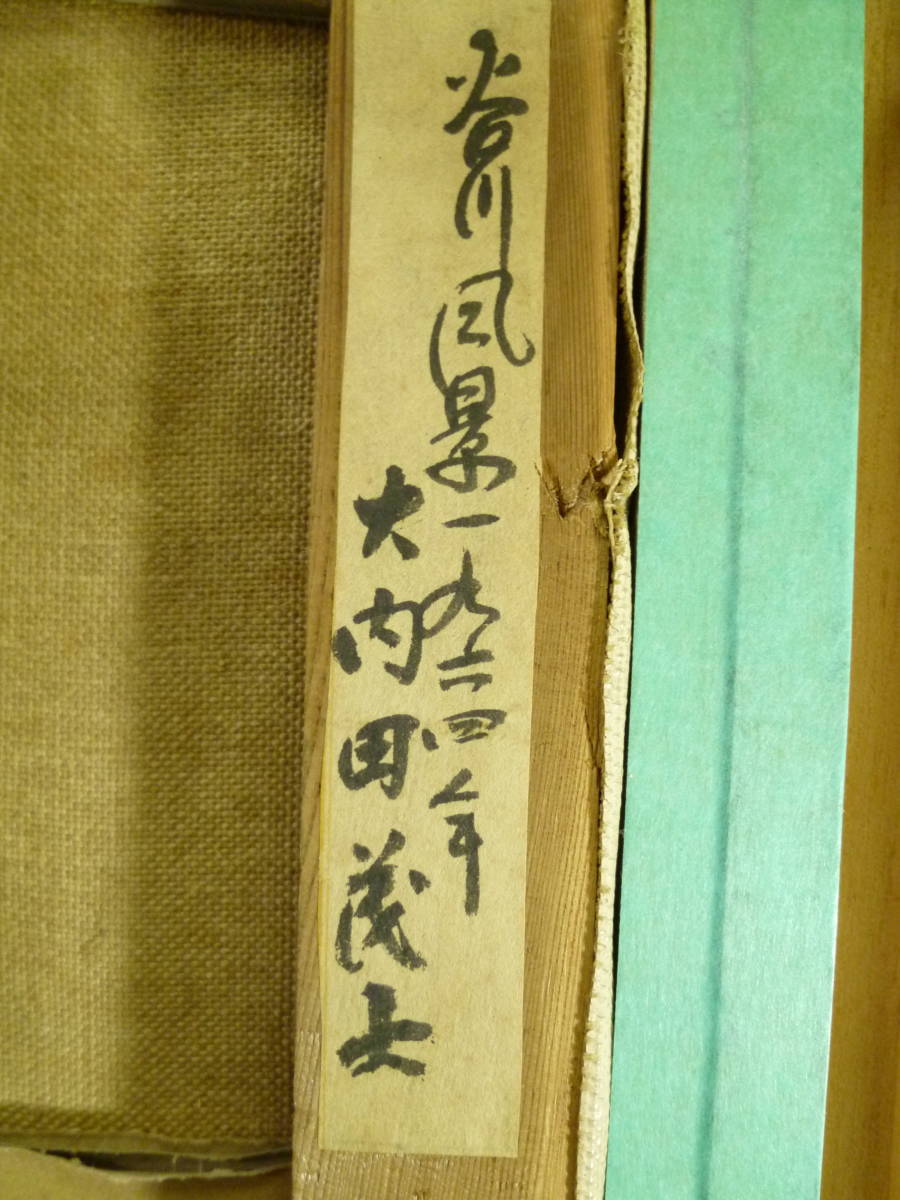 谷川風景一九二四年
大内田茂士